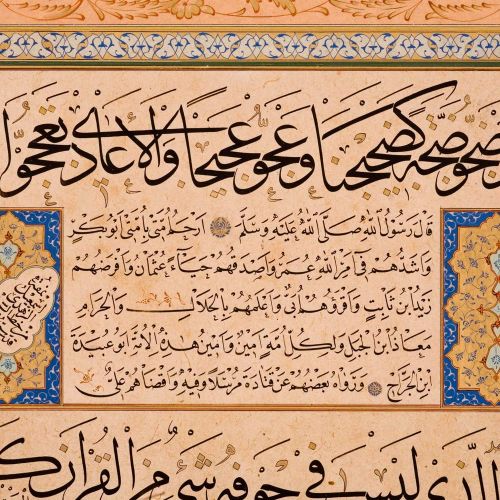 ضجة كضجيجنا وعجو عجيجا والأعادي
قال رسول الله صلى الله عليه وسلم ارحم أمتي بأمتي أبو بكر
وأشدهم في أمر الله عمر وأصدقهم حياء عثمان وأفرضهم
زيد ابن ثابت وأقرؤهم أبي وأعلمهم بالحلال والحرام
معاذ ابن الجبل ولكل أمة أمين وأمين هذه الأمة أبو عبيدة
ابن الجراح ورواه بعضهم عن قتادة مرسلا وفيه وأقضاهم علي
الذي ليس في جوفه شيء من القرآن